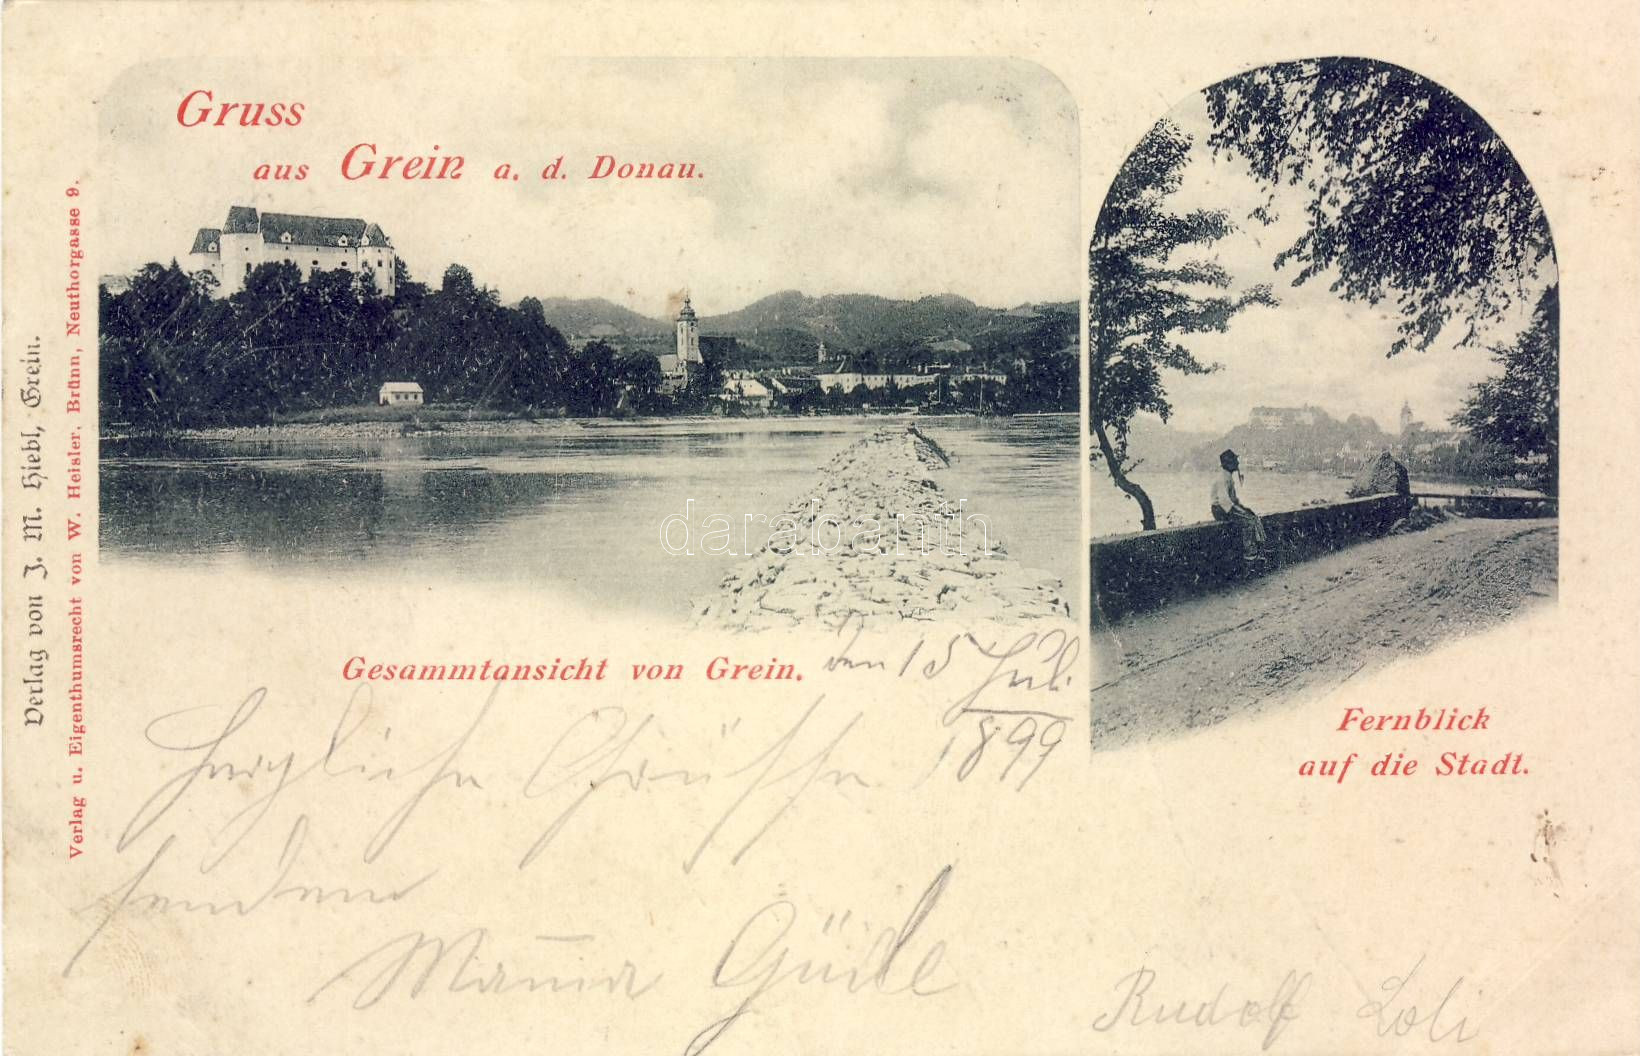 Gruss
aus Grein a. d. Donau.
Verlag von J. M. Hiebl, Grein.
Verlag u. Eigenthumsrecht von W. Heisler, Brünn, Neuthorgasse 9.
darabanth
Gesammtansicht von Grein.
den 15 Juli
1899
Fernblick
auf die Stadt.
Herzliche Grüsse
senden
Mama Rudolf